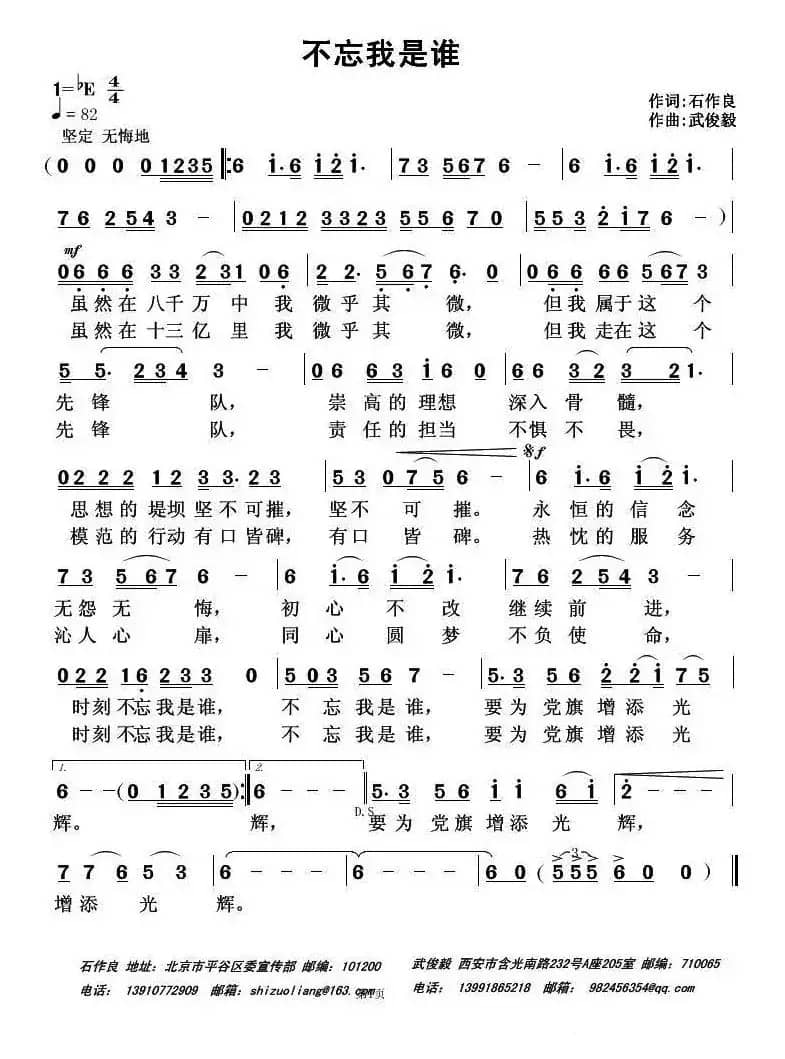 不忘我是谁
1=♭E 4/4
♩= 82
坚定 无悔地
作词:石作良
作曲:武俊毅
(0 0 0 0 1235 ‖: 6 1·6 121· | 73 567 6 - | 6 1·6 121· |
76 254 3 - | 0212 3323 556 70 | 553 217 6 - )
mf
0666 33 231 06 | 22· 567 6· 0 | 0666 66 567 3
虽然在八千万 中 我 微乎其 微， 但我 属于这 个
虽然在十三亿 里 我 微乎其 微， 但我 走在这 个
5 5· 234 3 - | 06 63 160 | 66 32 3 21·
先 锋 队， 崇 高的理想 深入 骨 髓，
先 锋 队， 责 任的担当 不惧 不 畏，
𝄋f
0222 12 33·23 | 53 075 6 - | 6 1·6 121·
思想的 堤坝 坚不可摧， 坚不 可 摧。 永 恒的 信 念
模范的 行动 有口皆碑， 有口 皆 碑。 热 忱的 服 务
73 567 6 - | 6 1·6 121· | 76 254 3 -
无怨无 悔， 初 心 不 改 继续 前 进，
沁人心 扉， 同 心 圆 梦 不负 使 命，
022 16 233 0 | 503 356 7 - | 5·3 56 221 75
时刻 不忘 我是谁， 不 忘 我是 谁， 要为 党旗 增 添 光
时刻 不忘 我是谁， 不 忘 我是 谁， 要为 党旗 增 添 光
1. 2.
6 - - (0 1235) :‖ 6 - - - ‖ 5·3 56 11 61 | 2 - - -
D.S
辉。 辉， 要为 党旗 增添 光 辉，
7 765 53 | 6 - - - | 6 - - - | 60 (555 60 0 ) ‖
3
增添 光 辉。
石作良 地址：北京市平谷区委宣传部 邮编：101200
武俊毅 西安市含光南路232号A座205室 邮编：710065
电话： 13910772909 邮箱：shizuoliang@163.com
第1页
电话： 13991865218 邮箱： 982456354@qq.com